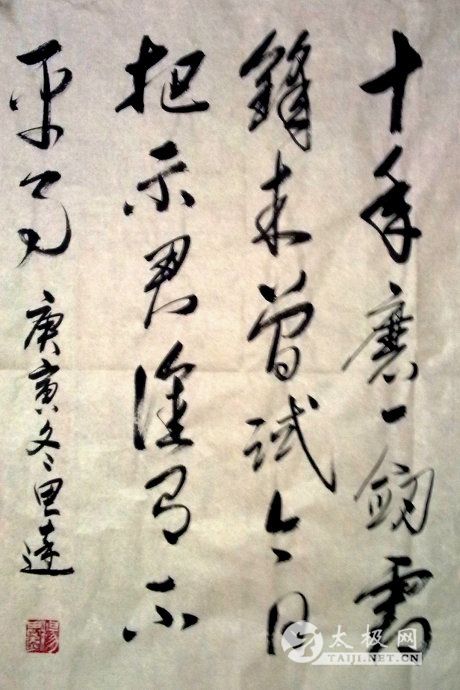 十年磨一劍霜
鋒未曾試今日
把示君誰有不
平事
庚寅冬里達
太极网
TAIJI.NET.CN